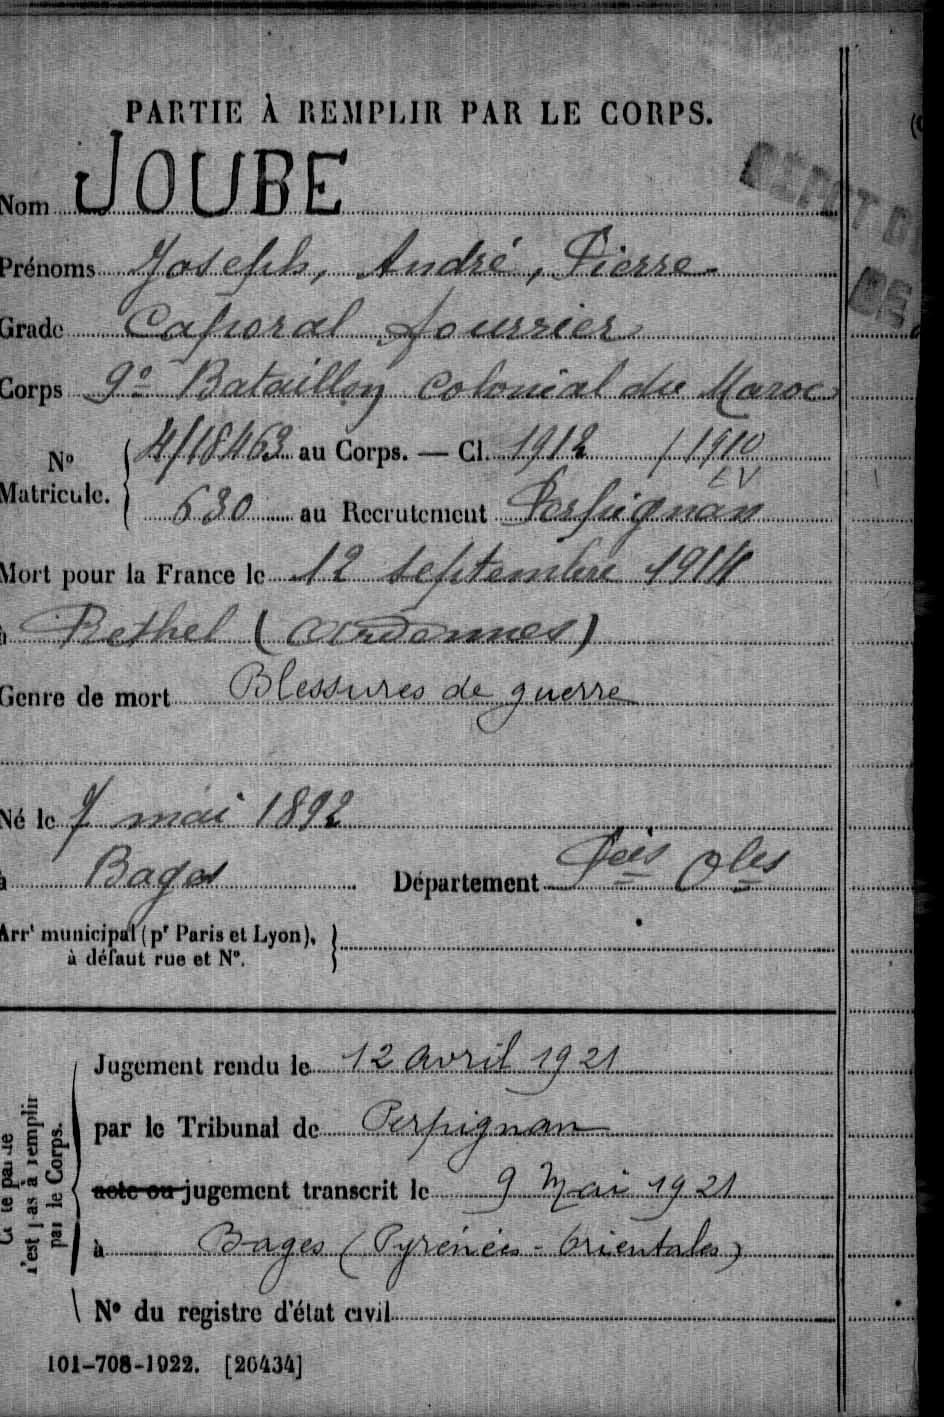 PARTIE À REMPLIR PAR LE CORPS.
Nom JOUBE
DÉPOT D
DE
Prénoms Joseph, André, Pierre
Grade Caporal fourrier
Corps 9e Bataillon colonial du Maroc
N° Matricule. 4/18463 au Corps. — Cl. 1912 / 1910 EV
630 au Recrutement Perpignan
Mort pour la France le 12 septembre 1914
à Rethel (Ardennes)
Genre de mort Blessures de guerre
Né le 7 mai 1892
à Bages Département Pées Oles
Arrt municipal (pr Paris et Lyon), à défaut rue et N°.
Jugement rendu le 12 avril 1921
par le Tribunal de Perpignan
acte ou jugement transcrit le 9 Mai 1921
à Bages (Pyrénées-Orientales)
N° du registre d'état civil
par le Corps.
101-708-1922. [26434]